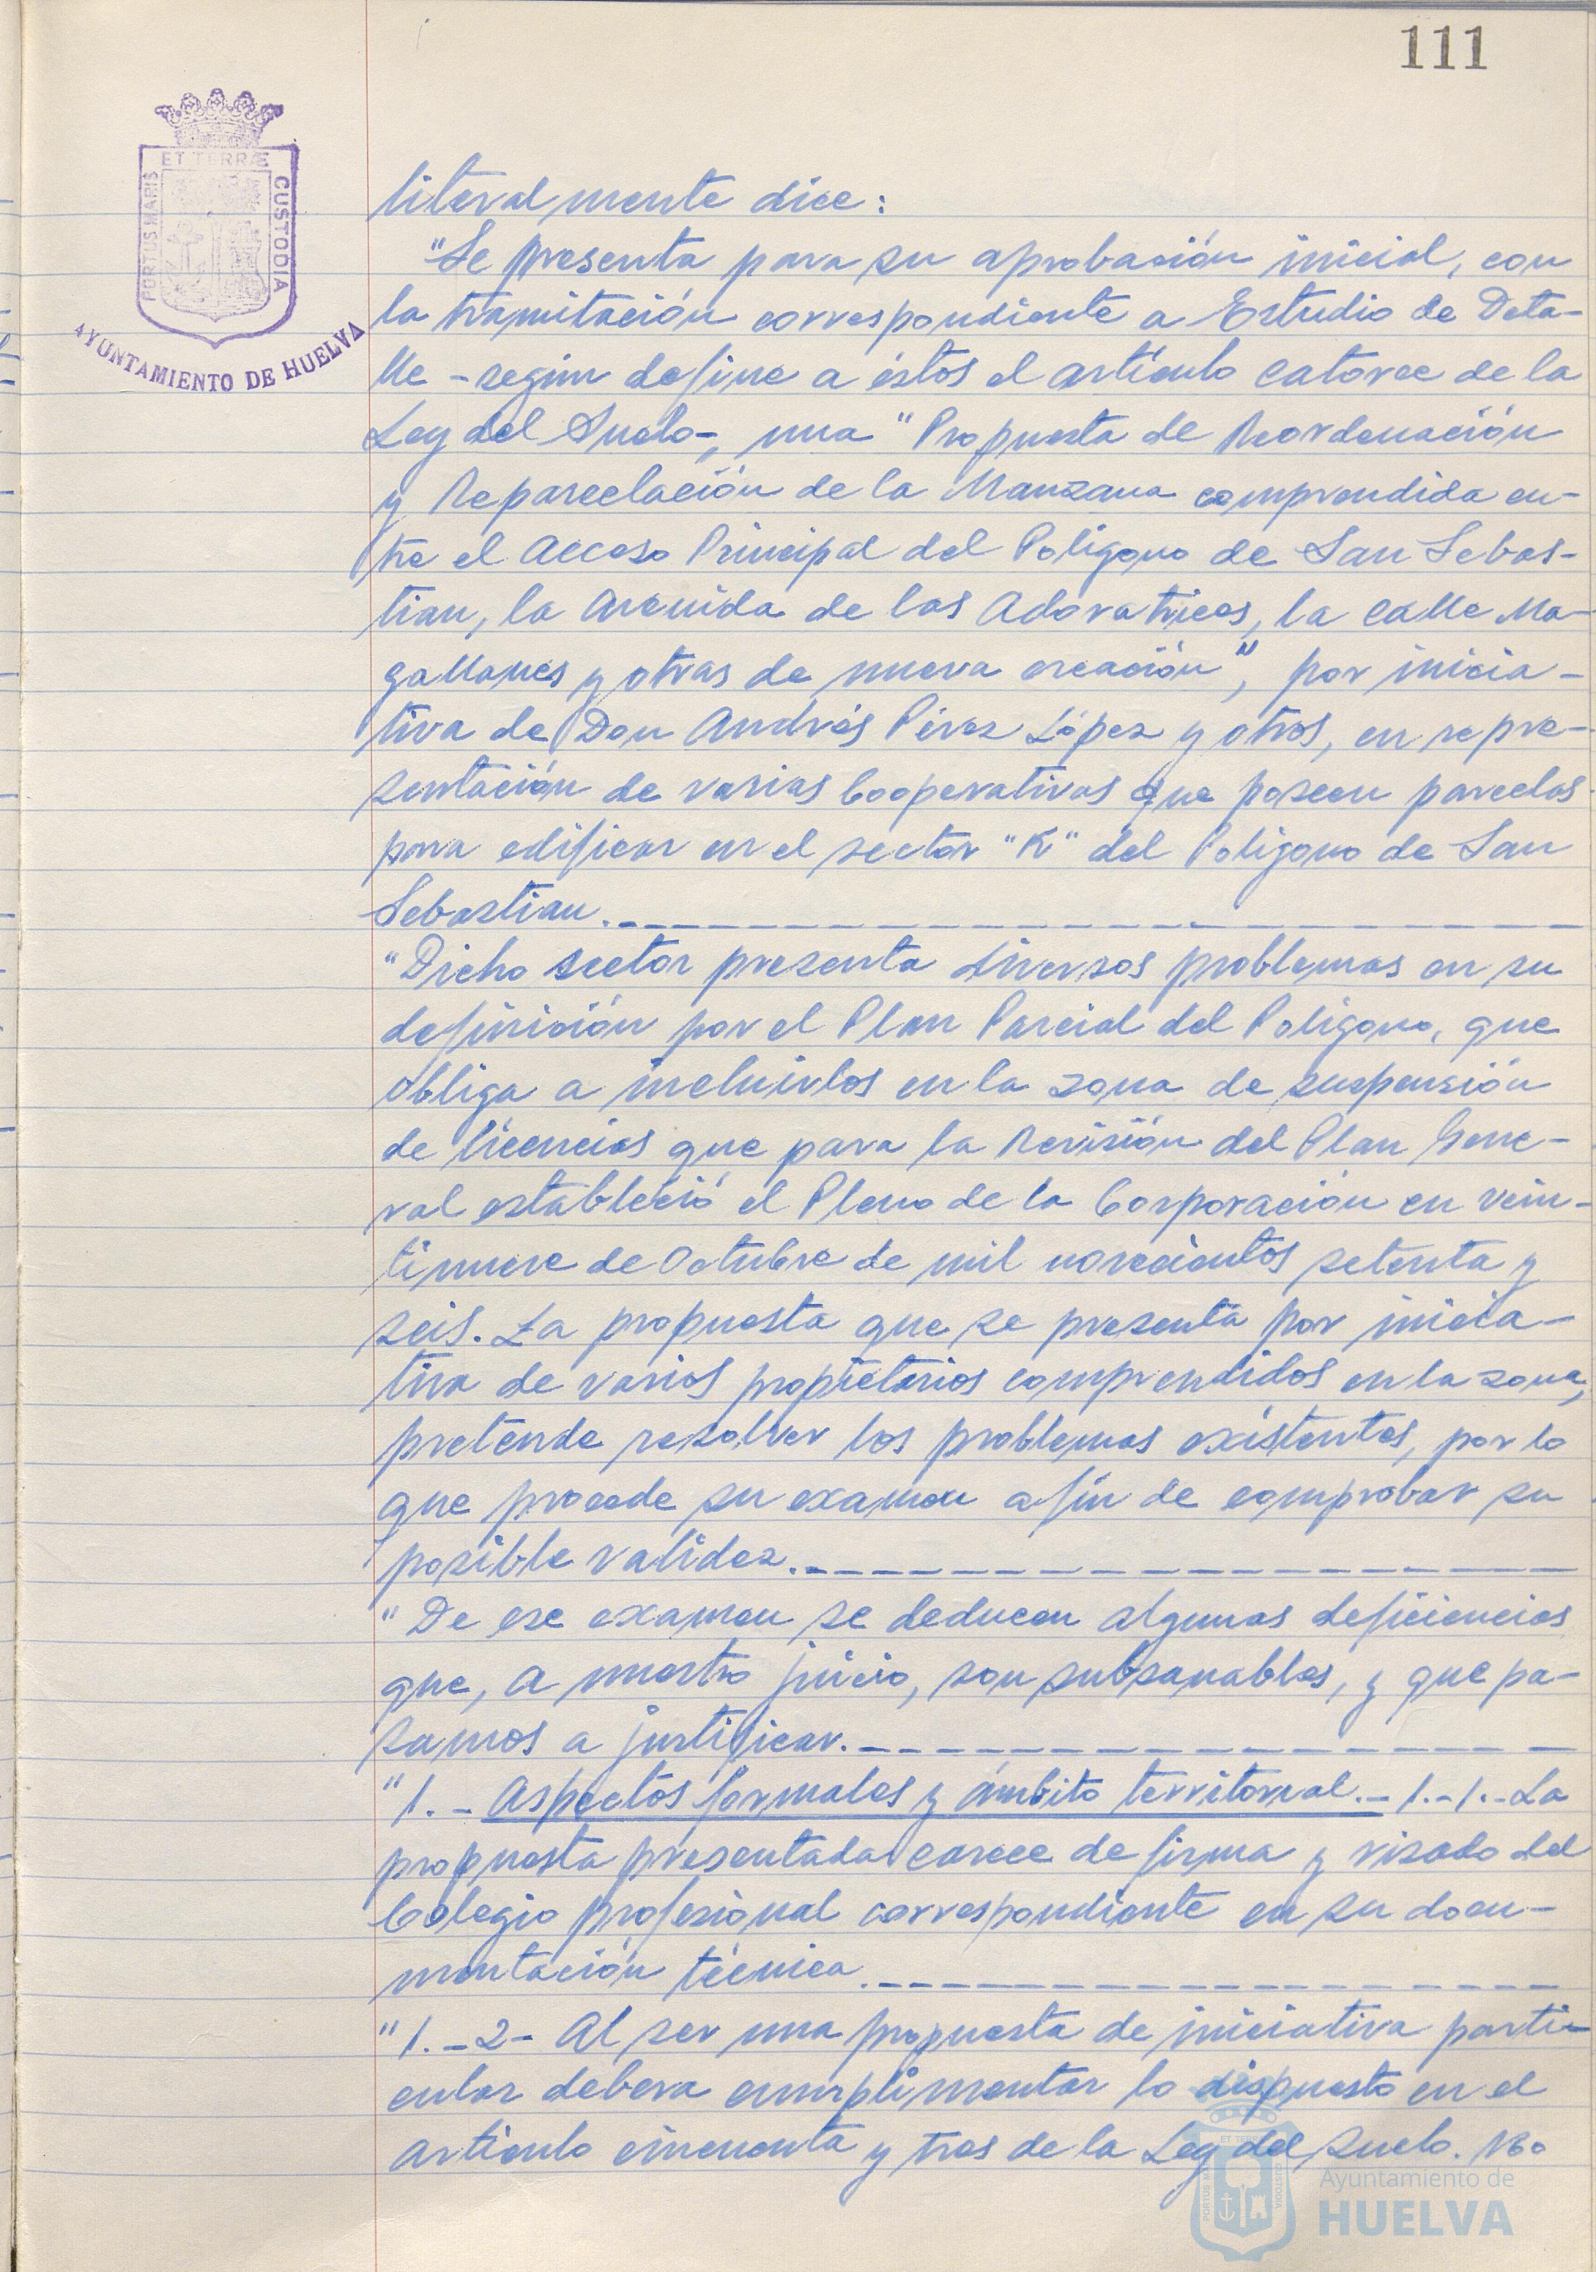 111
ET TERRÆ
PORTUS MARIS
CUSTODIA
AYUNTAMIENTO DE HUELVA
literalmente dice:
"Se presenta para su aprobación inicial, con
la tramitación correspondiente a Estudio de Deta-
lle -según define a éstos el artículo catorce de la
Ley del Suelo-, una "Propuesta de Reordenación
y Reparcelación de la Manzana comprendida en-
tre el Acceso Principal del Polígono de San Sebas-
tian, la Avenida de las Adoratrices, la calle Ma-
gallanes y otras de nueva creación", por inicia-
tiva de Don Andrés Pérez López y otros, en repre-
sentación de varias Cooperativas que poseen parcelas
para edificar en el sector "K" del Polígono de San
Sebastian.
"Dicho sector presenta diversos problemas en su
definición por el Plan Parcial del Polígono, que
obliga a incluirlos en la zona de suspensión
de licencias que para la Revisión del Plan Gene-
ral estableció el Pleno de la Corporación en vein-
tinueve de Octubre de mil novecientos setenta y
seis. La propuesta que se presenta por inicia-
tiva de varios propietarios comprendidos en la zona,
pretende resolver los problemas existentes, por lo
que procede su examen a fin de comprobar su
posible validez.
"De ese examen se deducen algunas deficiencias
que, a nuestro juicio, son subsanables, y que pa-
samos a justificar.
"1.- Aspectos formales y ámbito territorial.- 1.-1.-La
propuesta presentada carece de firma y visado del
Colegio profesional correspondiente en su docu-
mentación técnica.
"1.-2- Al ser una propuesta de iniciativa parti-
cular debera cumplimentar lo dispuesto en el
artículo cincuenta y tres de la Ley del Suelo. No
Ayuntamiento de
HUELVA